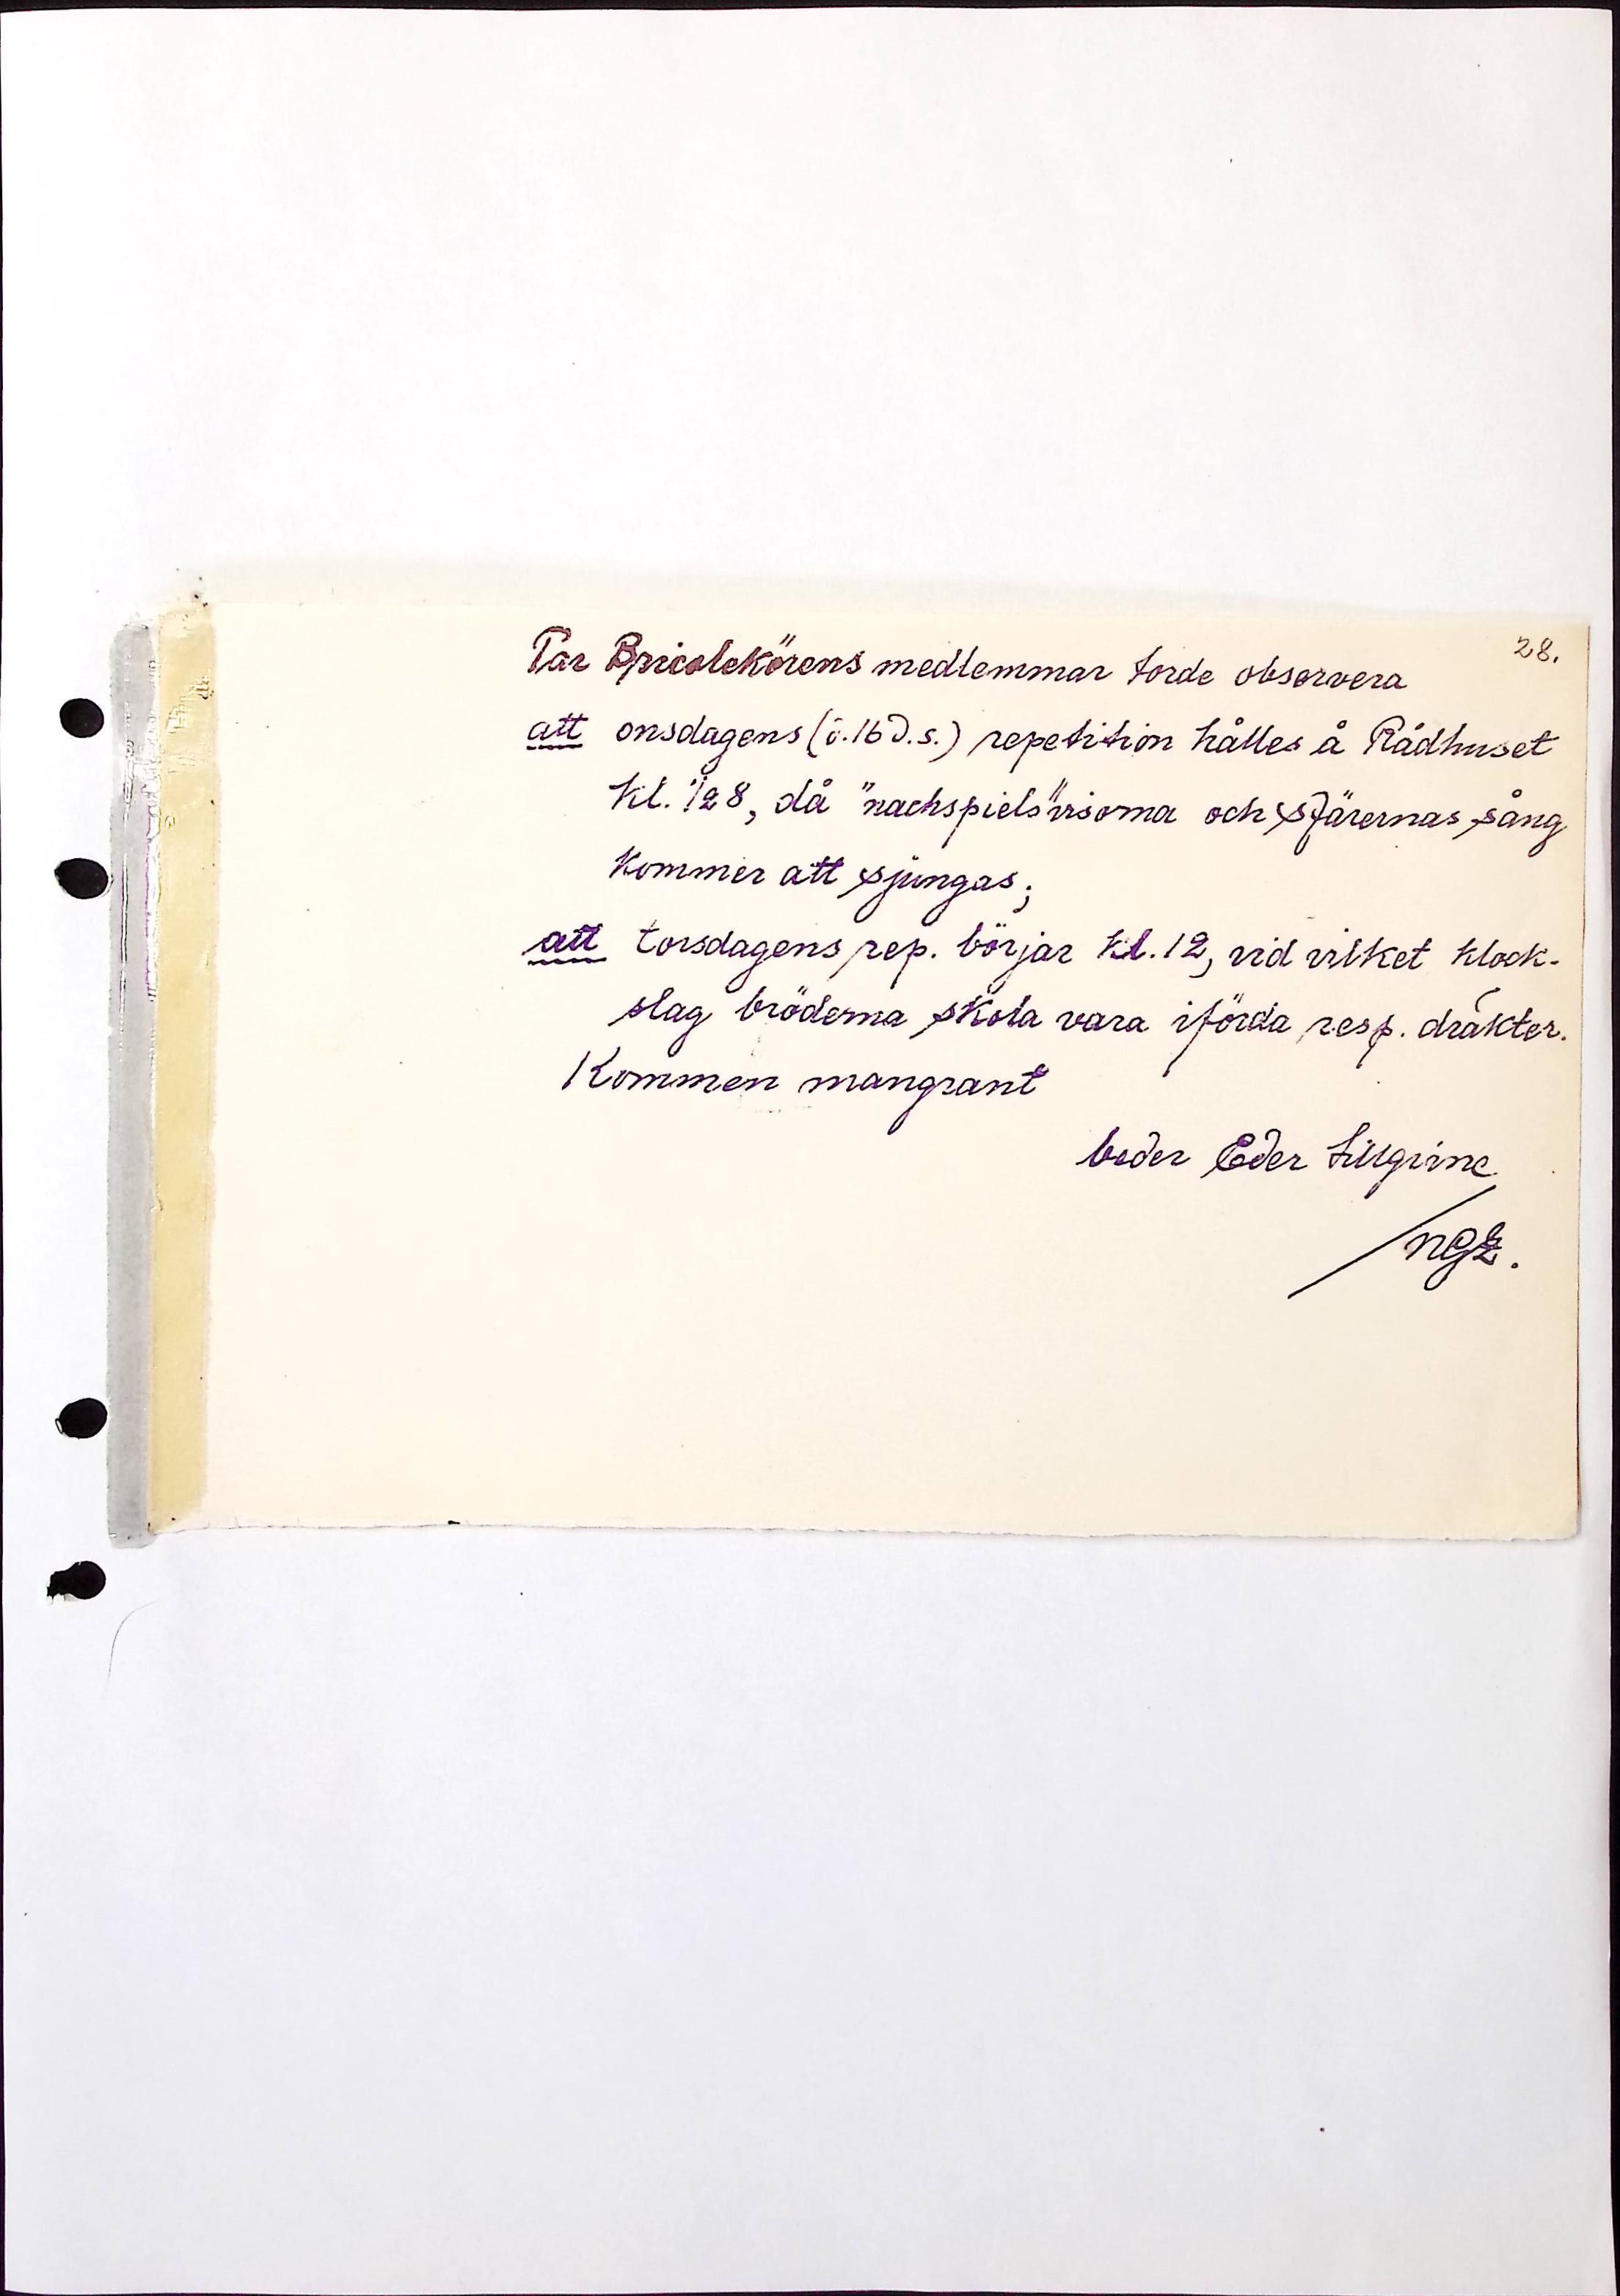 28.
Par Bricolekörens medlemmar torde observera
att onsdagens (d. 16 d.s.) repetition hålles å Rådhuset
kl. ½8, då "nachspiels"visorna och sfärernas sång
kommer att sjungas;
att torsdagens rep. börjar kl. 12, vid vilket klock-
slag bröderna skola vara iförda resp. dräkter.
Kommen mangrant
beder Eder tillgivne